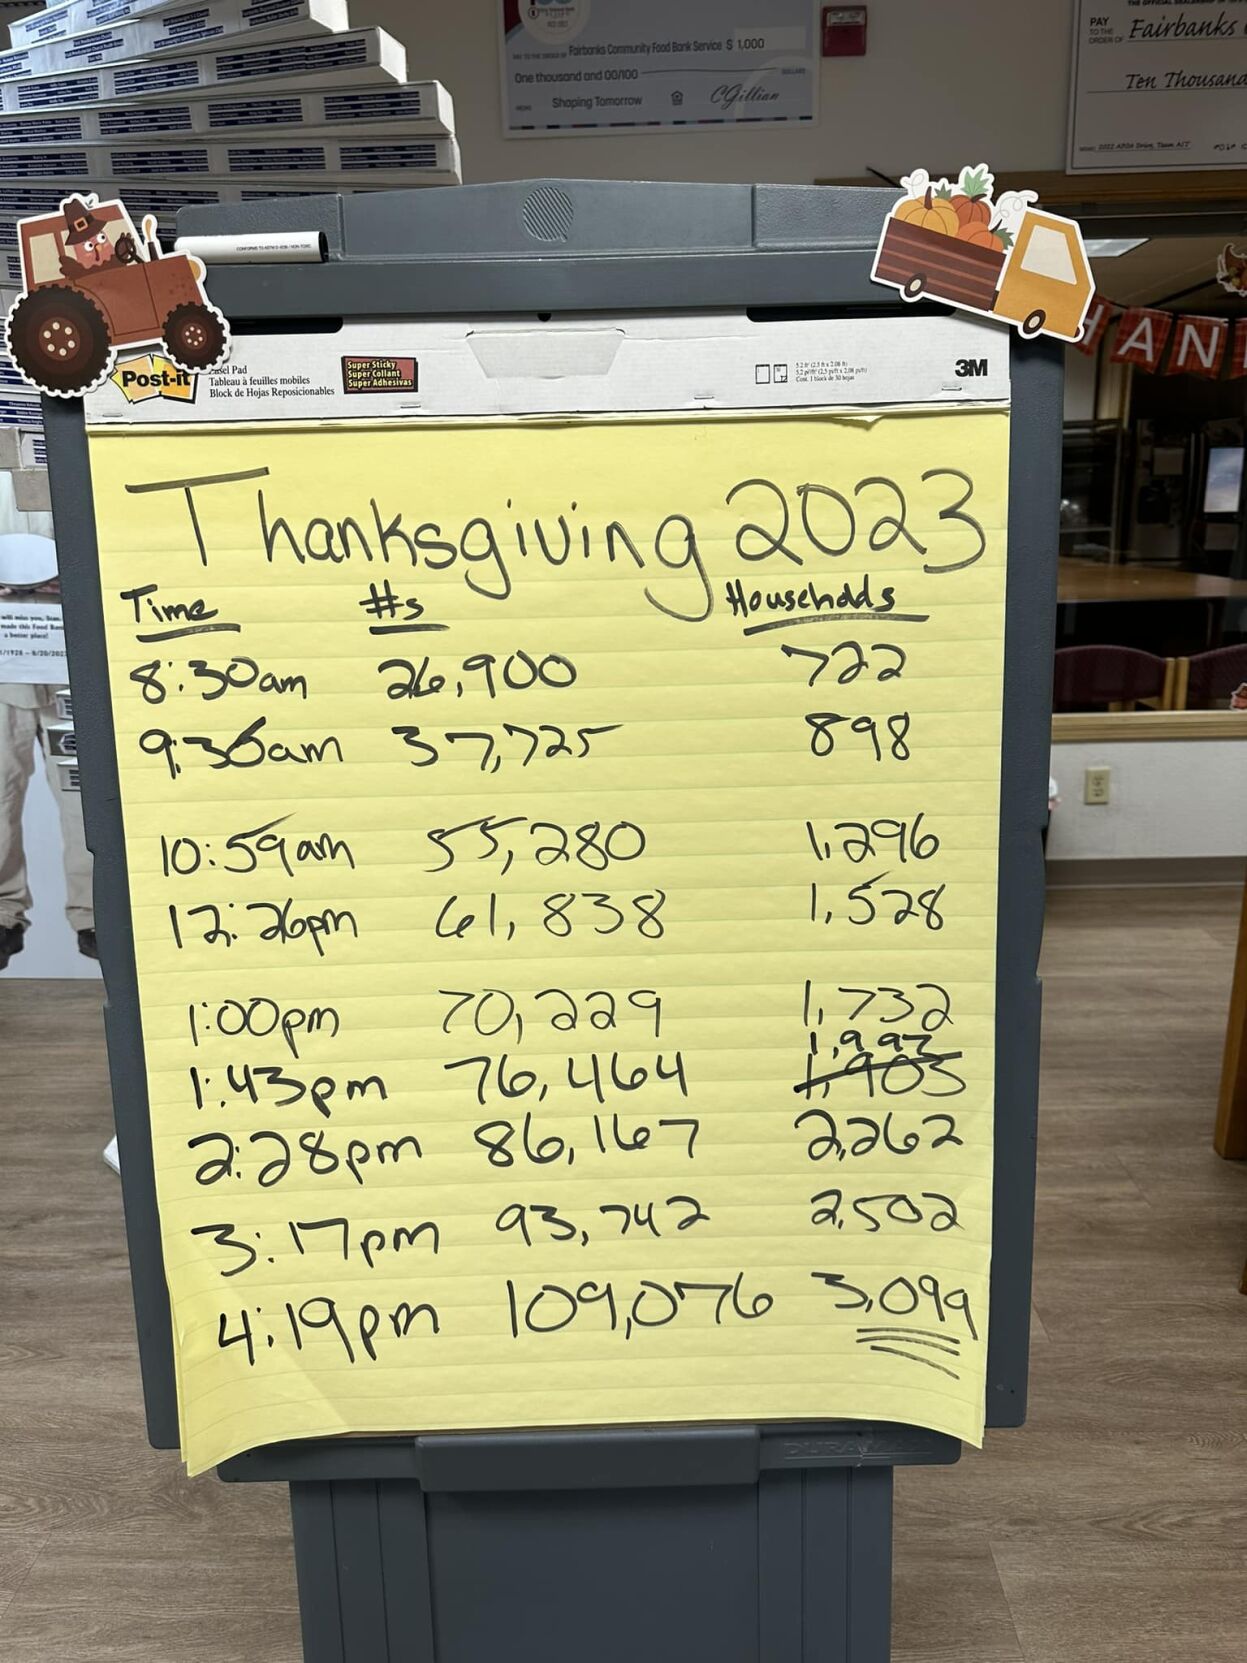 Fairbanks Community Food Bank Service $ 1,000
One thousand and 00/100
DOLLARS
Shaping Tomorrow
CGillian
PAY TO THE ORDER OF
Fairbanks
Ten Thousand
HAN
Post-it
Easel Pad
Tableau à feuilles mobiles
Block de Hojas Reposicionables
Super Sticky
Super Collant
Super Adhesivas
3M
Thanksgiving 2023
Time #s Households
8:30am 26,900 722
9:30am 37,725 898
10:59am 55,280 1,296
12:26pm 61,838 1,528
1:00pm 70,229 1,732
1,993
1:43pm 76,464 1,903
2:28pm 86,167 2,262
3:17pm 93,742 2,502
4:19pm 109,076 3,099